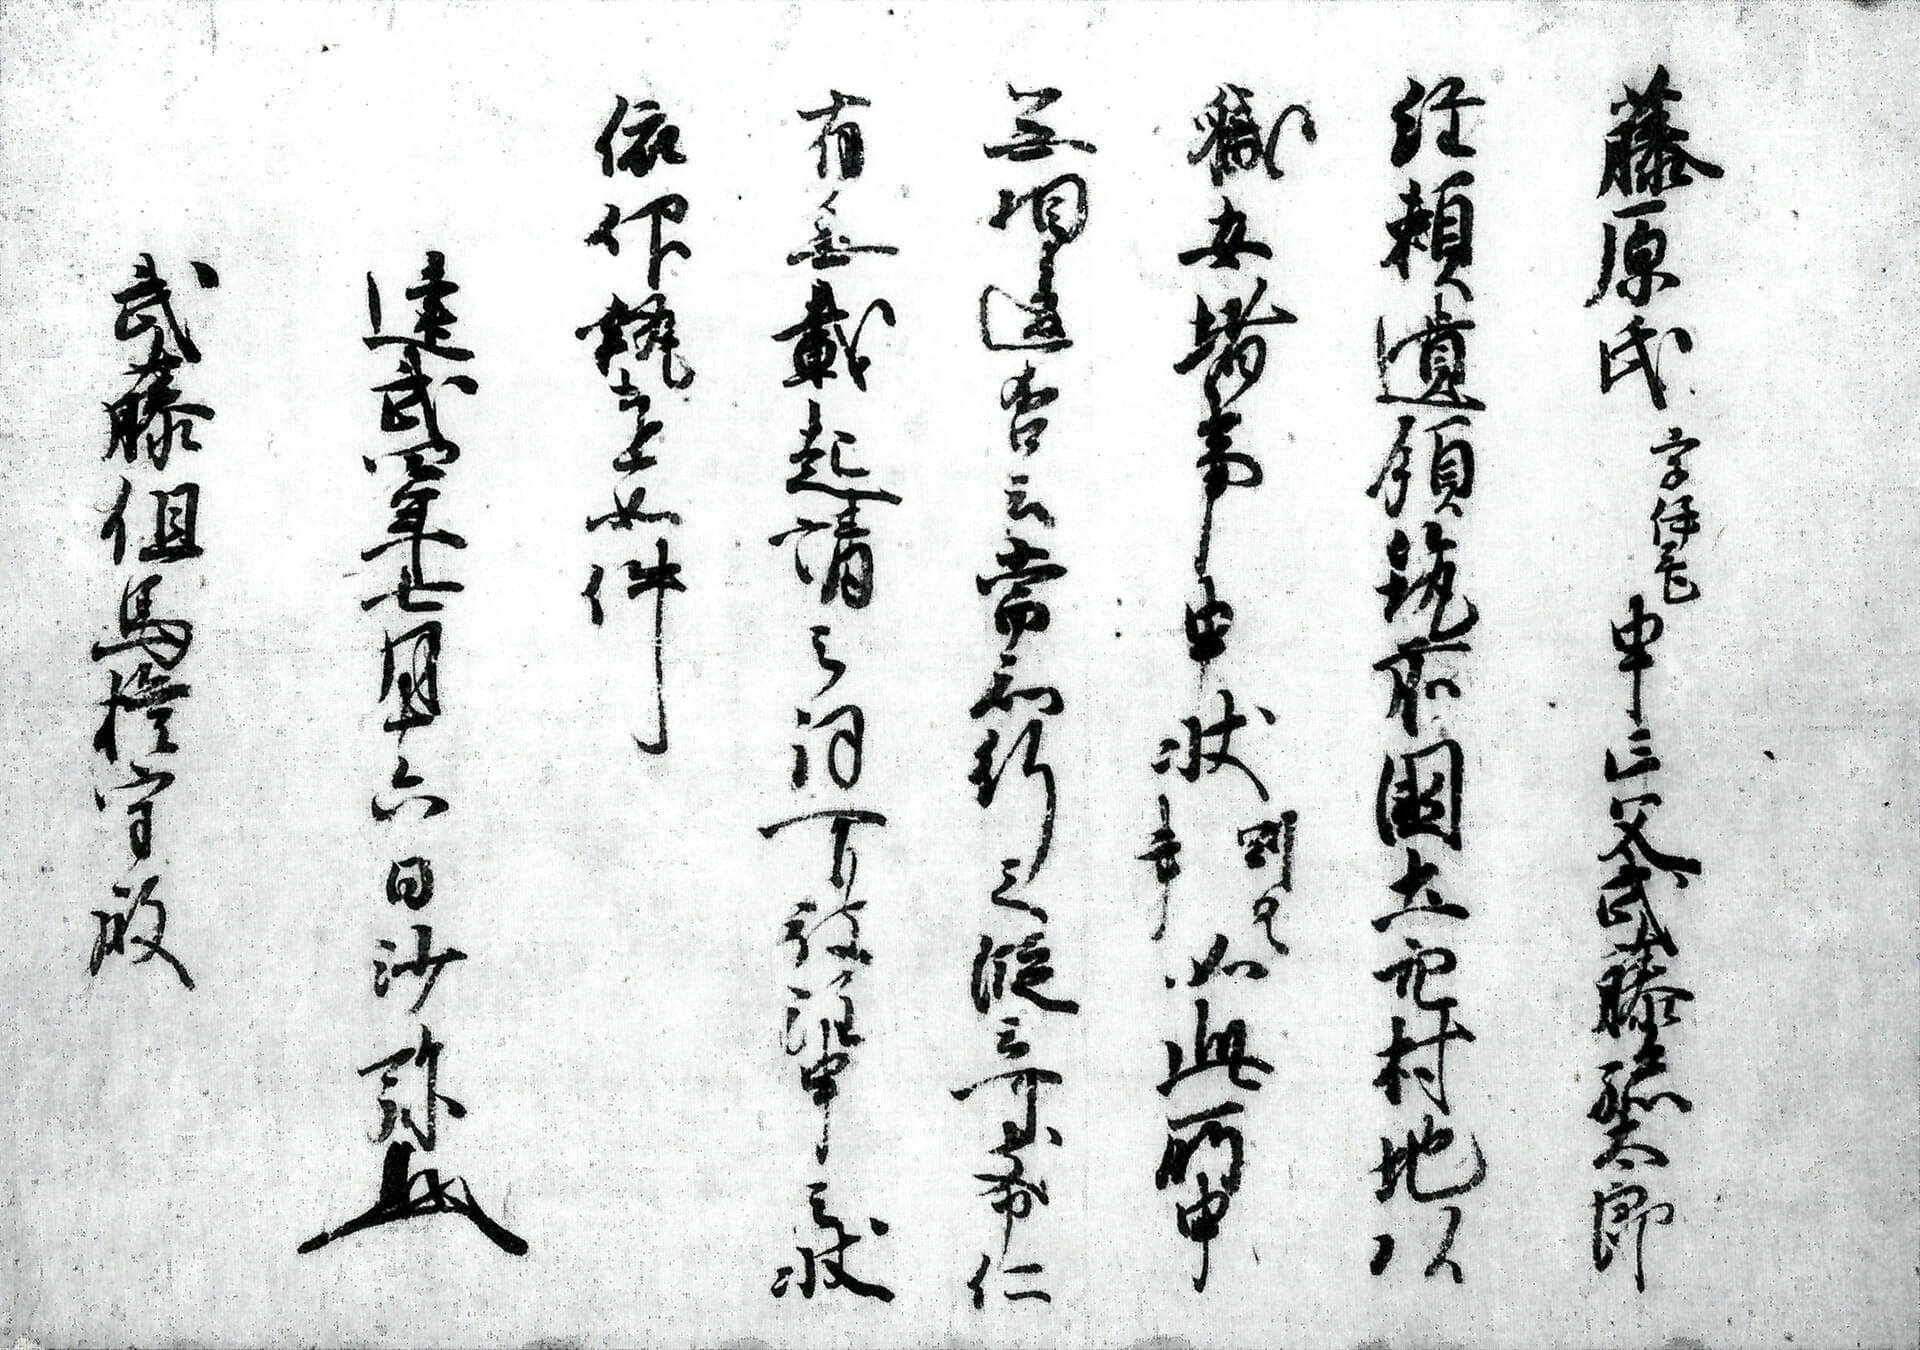 藤原氏字伊与申亡父武藤孫太郎
経頼遺領筑前国村地頭
職安堵事申状副具書如此所申
無相違否云当知行之段云可支申仁
有無載起請之詞可被注申之状
依仰執達如件
建武四年七月十六日沙弥
武藤但馬権守殿